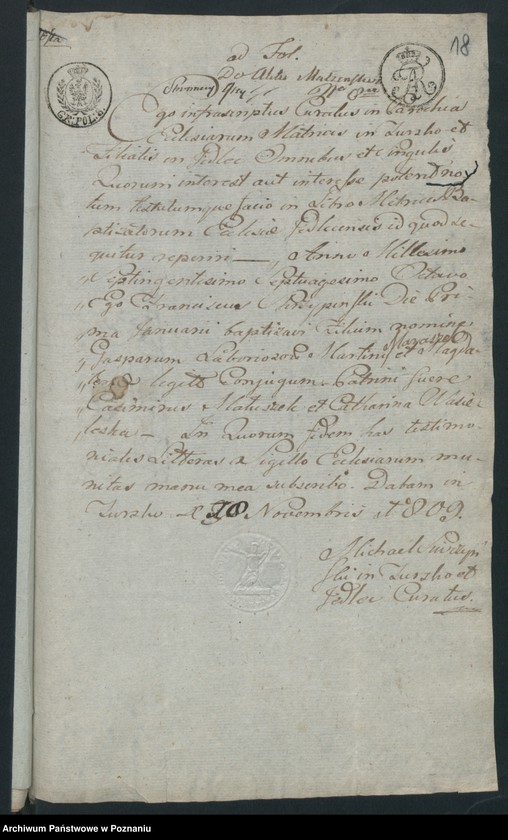 18
ad Fol.
Do Aktu
GR: POL: 8.
Ego infrascriptus Curatus in Parochia
Ecclesiarum Matricis in Turzko et
Filialis in Jedlec Omnibus et Singulis
Quorum interest aut interesse poterit no-
tum testatumque facio in Libro Metrices Ba-
ptizatorum Ecclesiæ Jedlecensis id quod se-
quitur reperiri — „ Anno Millesimo
„ Septingentesimo Septuagesimo Octavo
„ Ego Franciscus Skrzypinski Die Pri-
„ ma Januarii baptizavi Filium nomine
„ Gasparum Laboriosor Martini et Magda-
„ legitt Conjugum. Patrini fuere
„ Casimirus Matuszek et Catharina
In Quorum fidem has testimo-
niales Litteras Sigillo Ecclesiarum mu-
nitas manu mea subscribo. Datum in
Turzko 28 Novembris 1809.
Michael
ski in Turzko et
Jedlec Curatus.
Archiwum Państwowe w Poznaniu